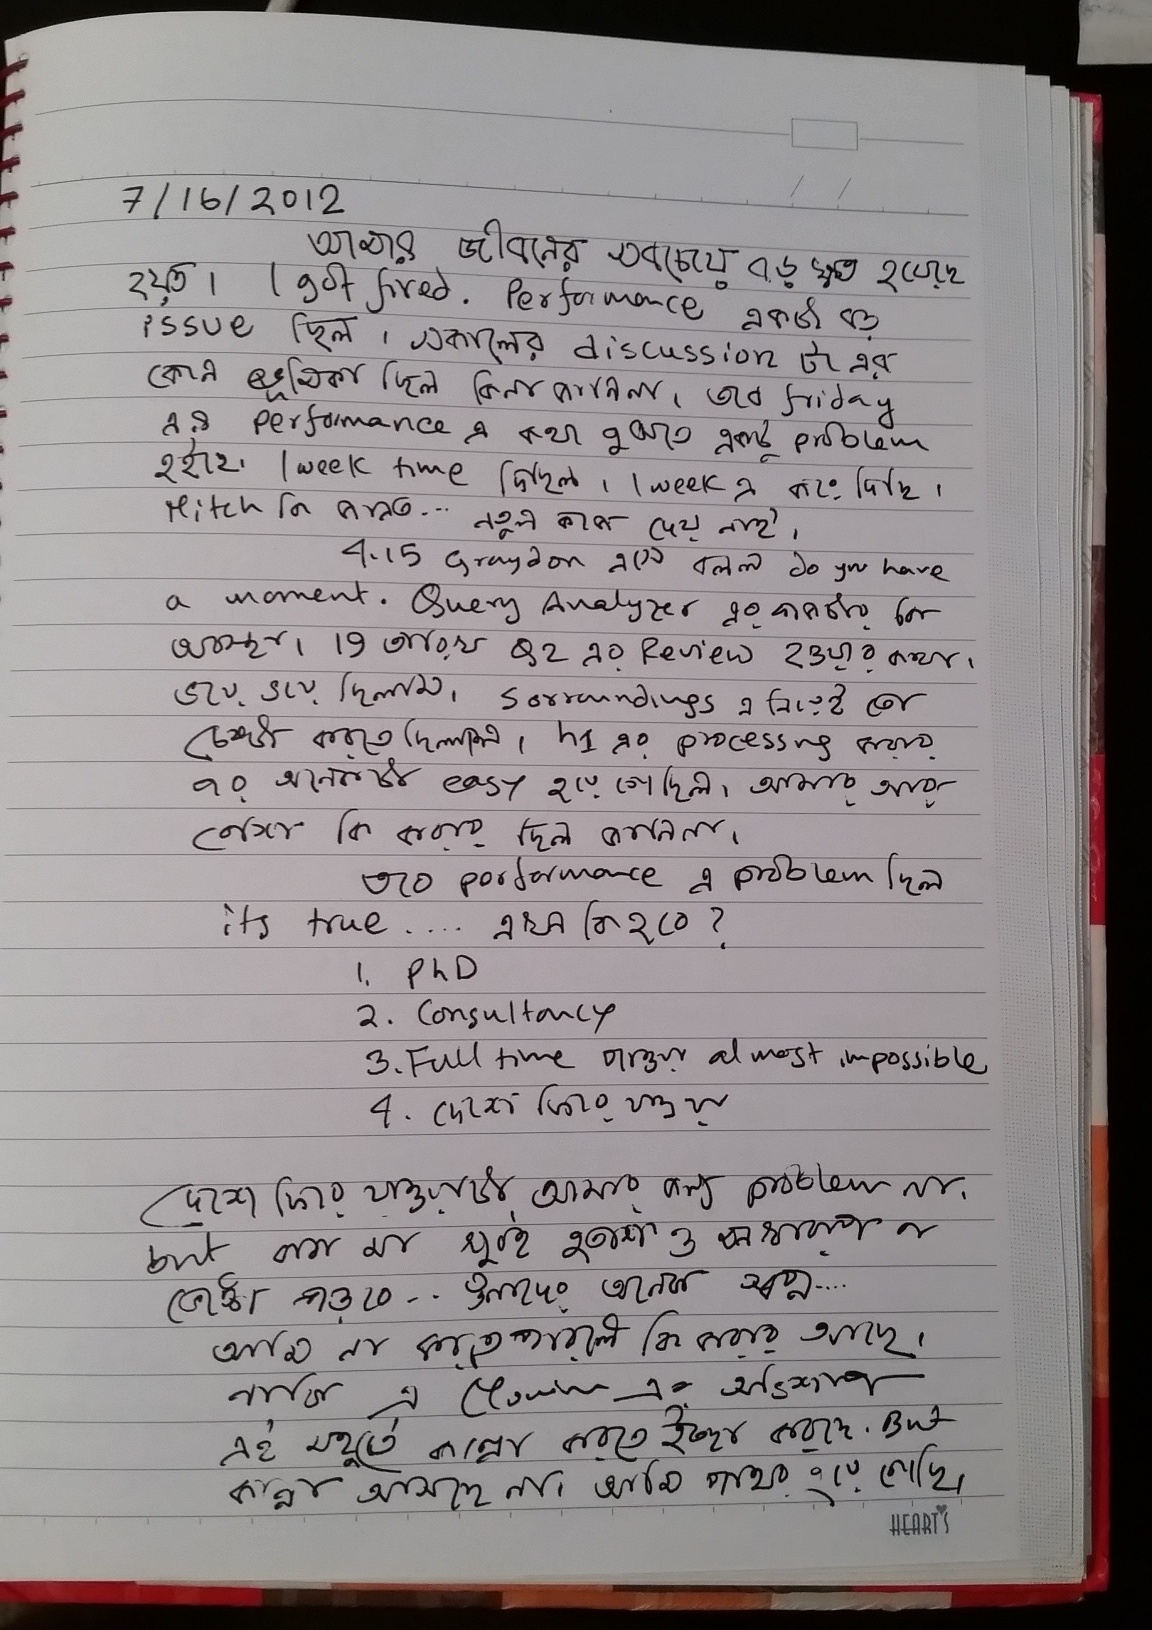 7/16/2012
আমার জীবনের সবচেয়ে বড় ক্ষত হয়েছে
হয়ত। I got fired. Performance একটা বড়
issue ছিল। সকালের discussion টা এর
কোন ভূমিকা ছিল কিনা জানিনা। তবে friday
এর performance এ কথা বুঝাতে একটু problem
হইছে। 1 week time দিছিল। 1 week এ করে দিছি।
Mitch কি জানত... নতুন কাজ দেয় নাই।
4.15 Graydon এসে বলল do you have
a moment. Query Analyzer এর কাজটার
অবস্থা। 19 তারিখ Q2 এর Review হওয়ার কথা।
ভয়ে ভয়ে ছিলাম। Sorroundings এ নিজেই তো
চেষ্টা করতেছিলাম। h1 এর processing করার
পর অনেকটা easy হয়ে গেছিল। আমার আর
বেশি কি করার ছিল জানিনা।
তবে performance এ problem ছিল
its true.... এখন কি হবে?
1. PhD
2. Consultancy
3. Full time পাওয়া almost impossible
4. দেশে ফিরে যাওয়া
দেশে ফিরে যাওয়াটা আমার জন্য problem না।
but বাবা মা খুবই হতাশ ও
পড়বে... উনাদের অনেক স্বপ্ন....
আমি না করতে পারলে কি করার আছে।
এ এর অভিশাপ
এই মুহূর্তে কান্না করতে ইচ্ছা করছে. But
কান্না আসছে না। আমি পাথর হয়ে গেছি।
HEART'S